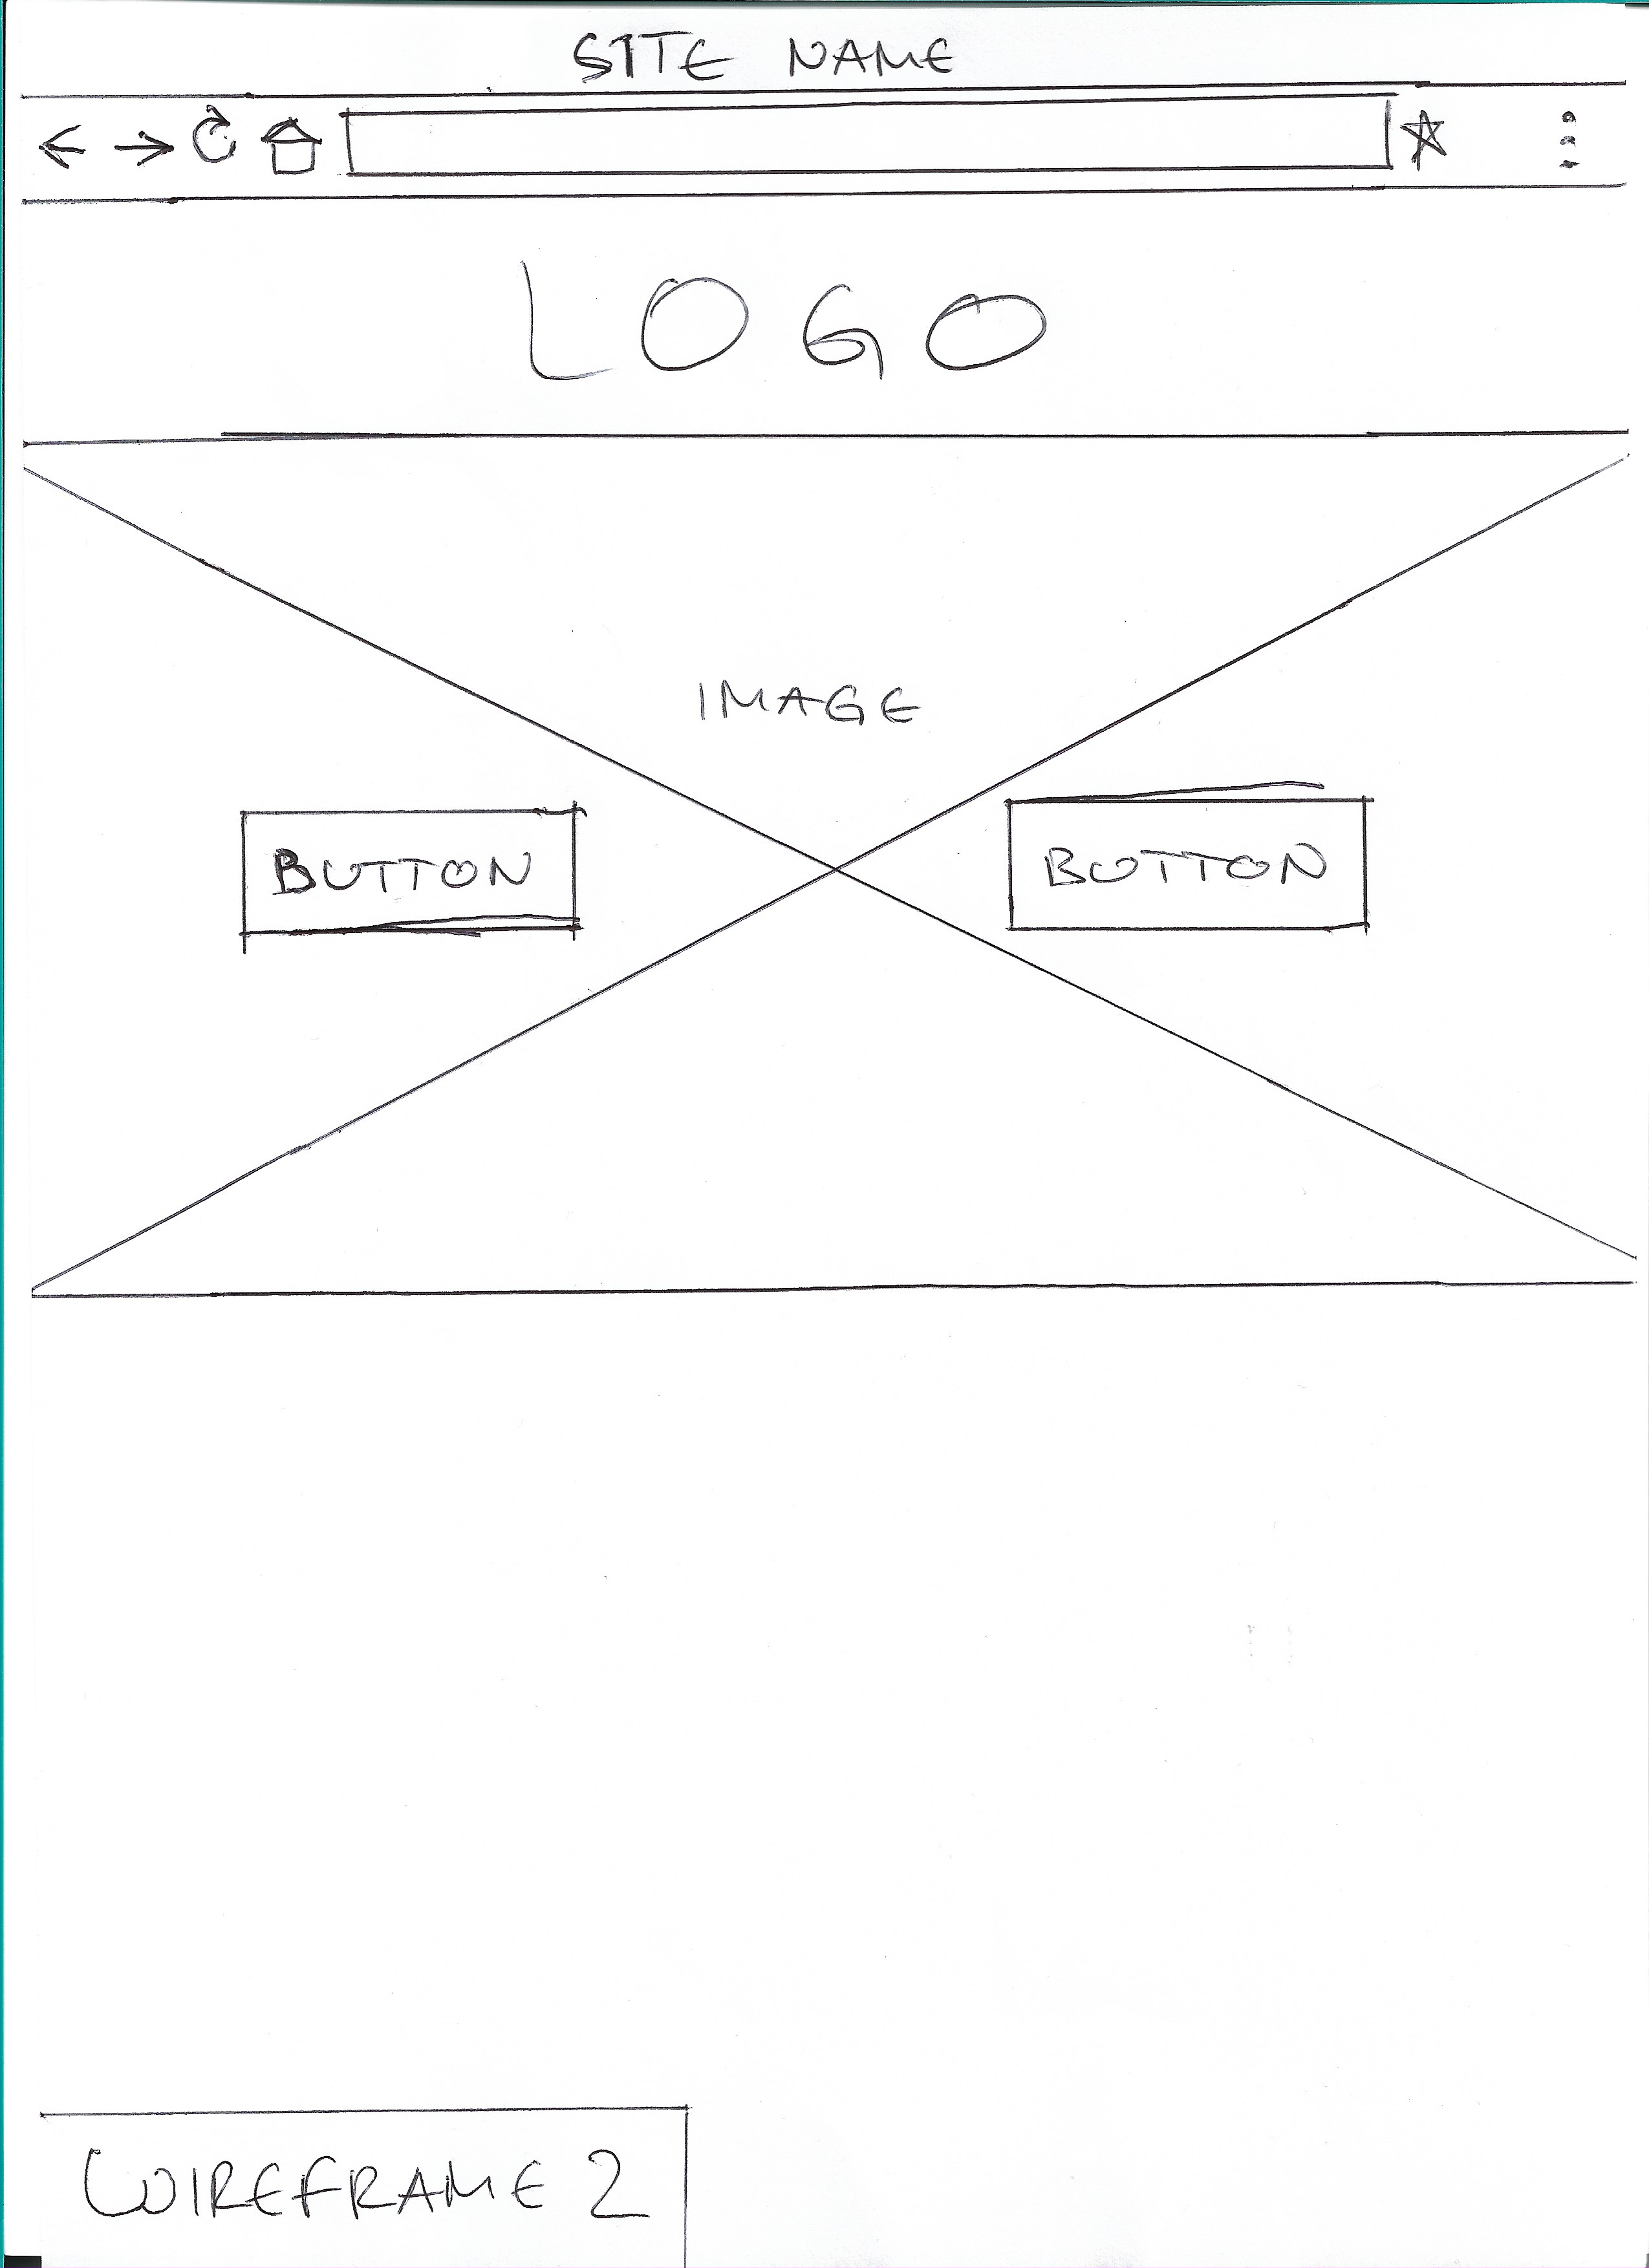 SITE NAME
LOGO
IMAGE
BUTTON BUTTON
WIREFRAME 2